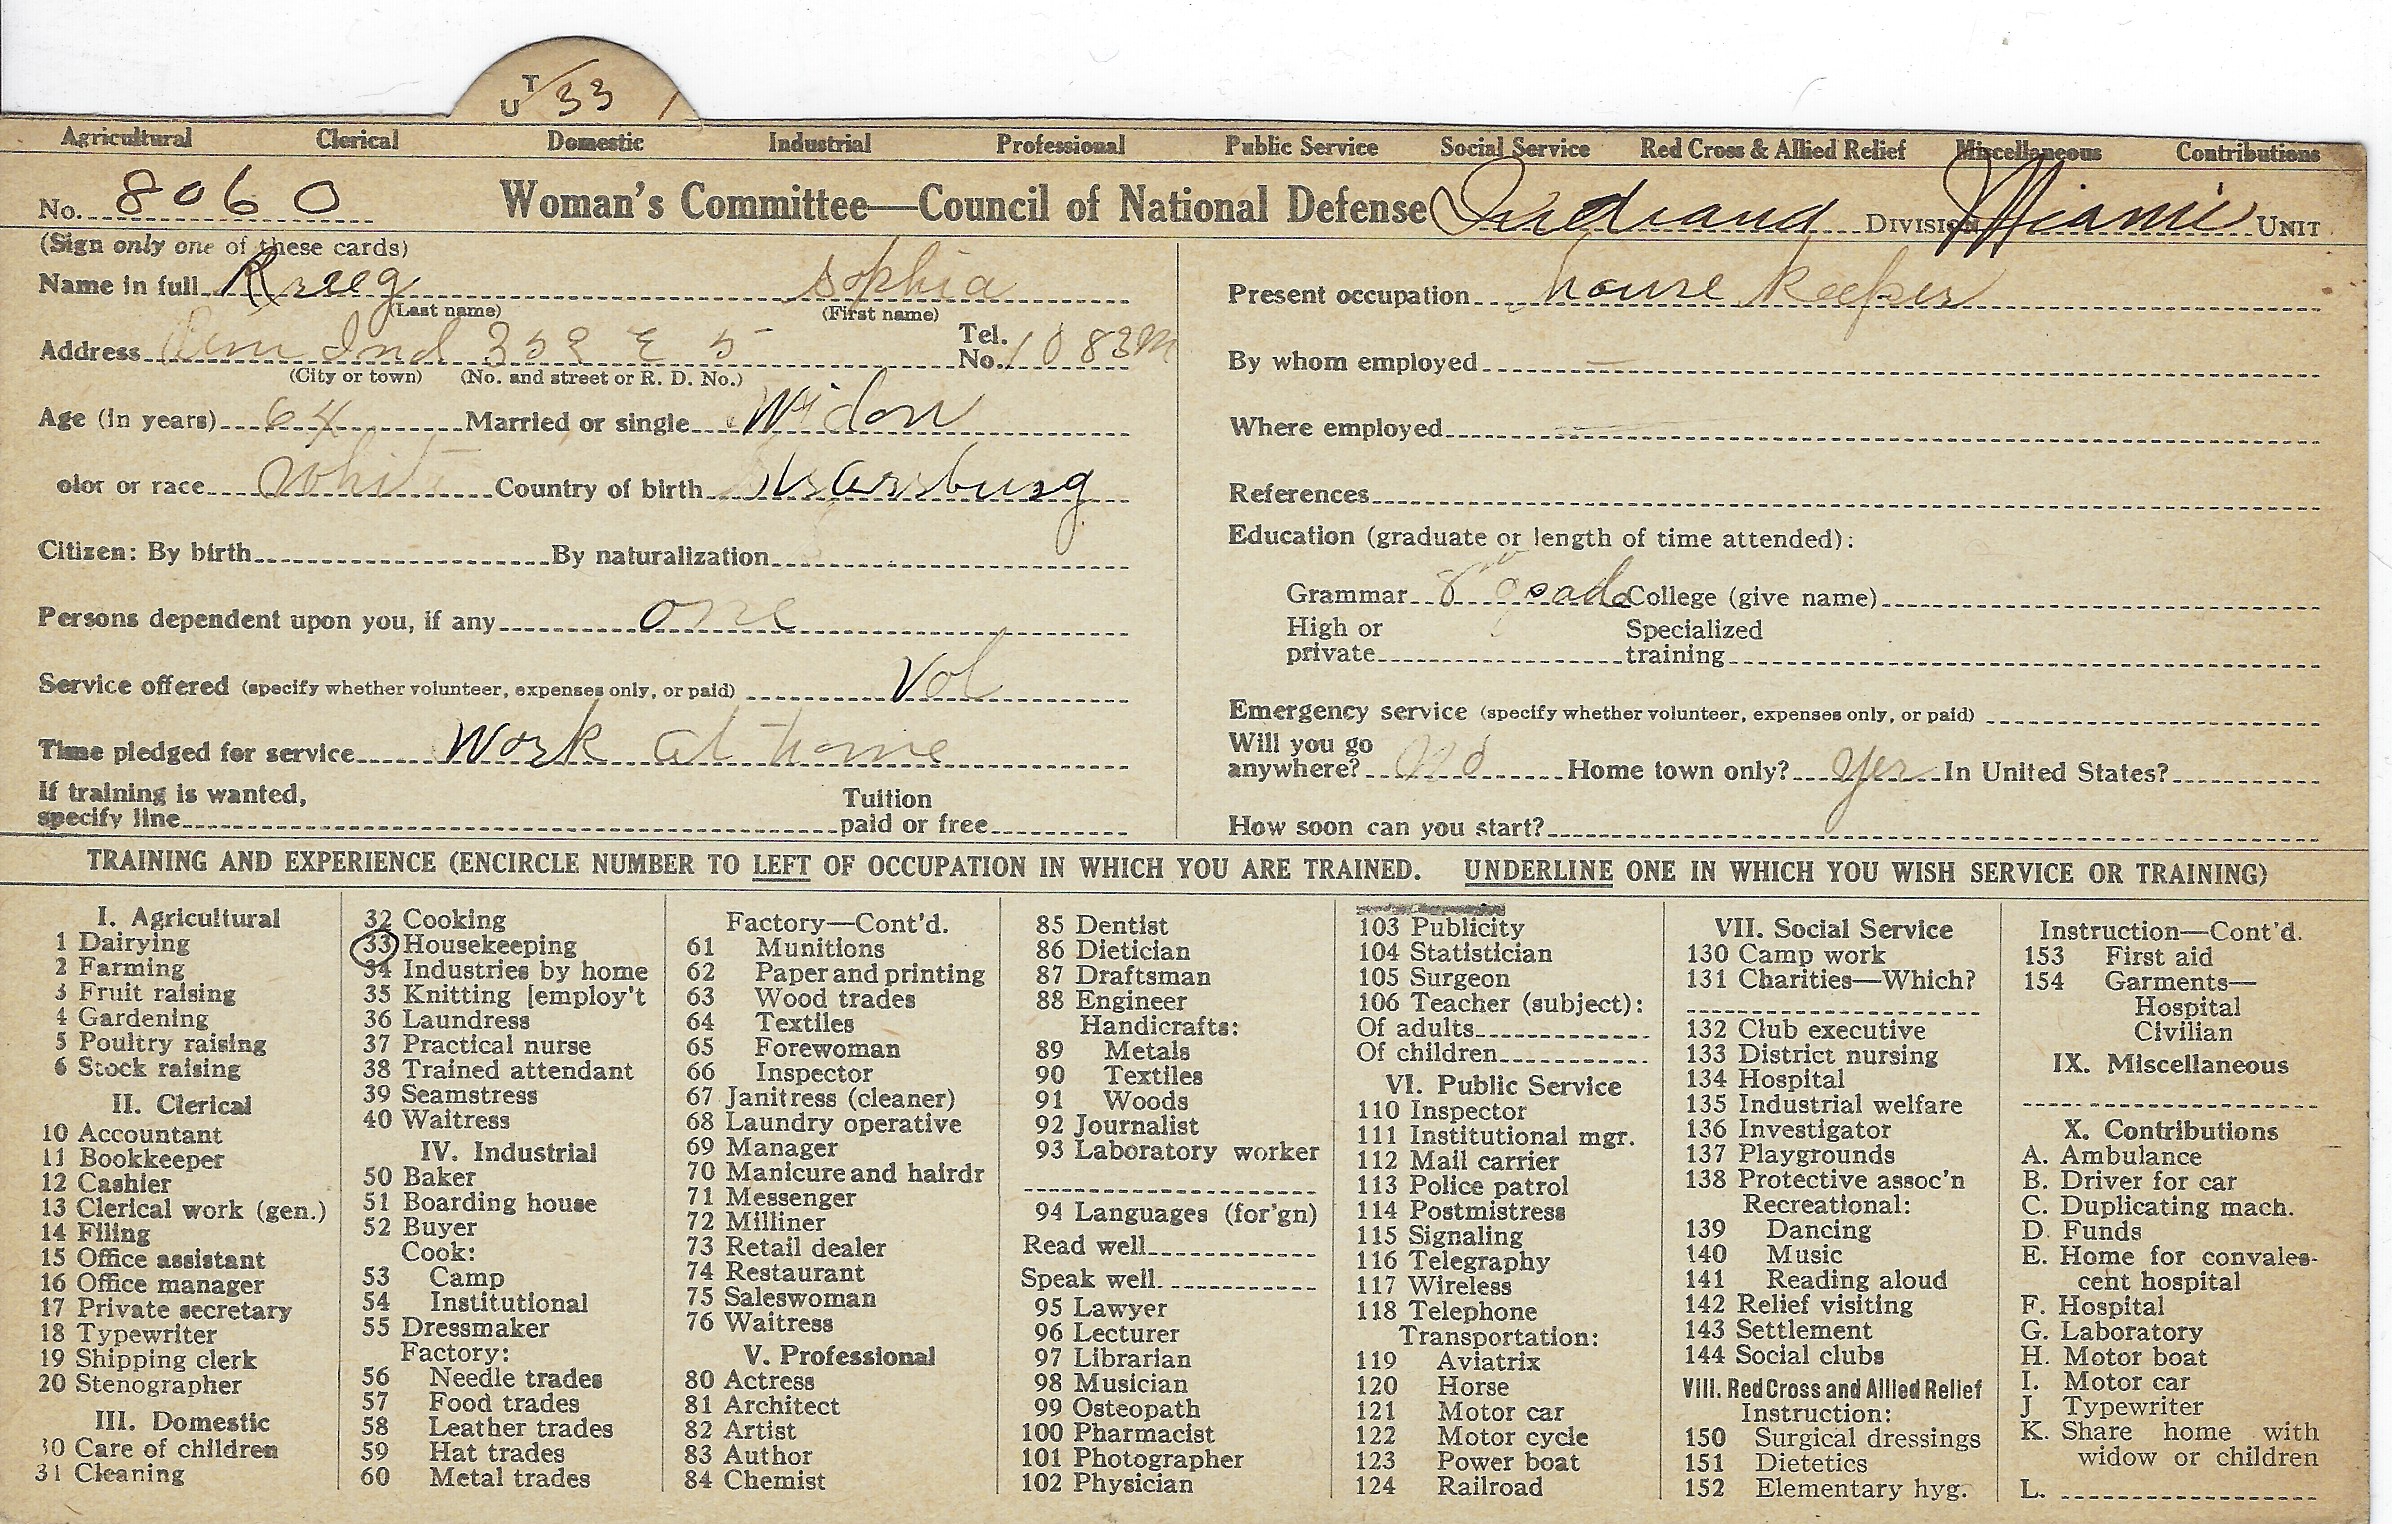 T
U 33 1
Agricultural Clerical Domestic Industrial Professional Public Service Social Service Red Cross & Allied Relief Miscellaneous Contributions
No. 8060 Woman's Committee—Council of National Defense Indiana DIVISION Miami UNIT
(Sign only one of these cards)
Name in full Kreeg Sophia
(Last name) (First name)
Address Ind 352 E 5 Tel. No. 1083M
(City or town) (No. and street or R. D. No.)
Age (in years) 64 Married or single Widow
olor or race White Country of birth
Citizen: By birth By naturalization
Persons dependent upon you, if any one
Service offered (specify whether volunteer, expenses only, or paid) Vol
Time pledged for service Work at home
If training is wanted, specify line Tuition paid or free
Present occupation house keeper
By whom employed —
Where employed —
References
Education (graduate or length of time attended):
Grammar 8 grade College (give name)
High or private Specialized training
Emergency service (specify whether volunteer, expenses only, or paid)
Will you go anywhere? No Home town only? Yes In United States?
How soon can you start?
TRAINING AND EXPERIENCE (ENCIRCLE NUMBER TO LEFT OF OCCUPATION IN WHICH YOU ARE TRAINED. UNDERLINE ONE IN WHICH YOU WISH SERVICE OR TRAINING)
I. Agricultural
1 Dairying
2 Farming
3 Fruit raising
4 Gardening
5 Poultry raising
6 Stock raising
II. Clerical
10 Accountant
11 Bookkeeper
12 Cashier
13 Clerical work (gen.)
14 Filing
15 Office assistant
16 Office manager
17 Private secretary
18 Typewriter
19 Shipping clerk
20 Stenographer
III. Domestic
30 Care of children
31 Cleaning
32 Cooking
33 Housekeeping
34 Industries by home
35 Knitting [employ't
36 Laundress
37 Practical nurse
38 Trained attendant
39 Seamstress
40 Waitress
IV. Industrial
50 Baker
51 Boarding house
52 Buyer
Cook:
53 Camp
54 Institutional
55 Dressmaker
Factory:
56 Needle trades
57 Food trades
58 Leather trades
59 Hat trades
60 Metal trades
Factory—Cont'd.
61 Munitions
62 Paper and printing
63 Wood trades
64 Textiles
65 Forewoman
66 Inspector
67 Janitress (cleaner)
68 Laundry operative
69 Manager
70 Manicure and hairdr
71 Messenger
72 Milliner
73 Retail dealer
74 Restaurant
75 Saleswoman
76 Waitress
V. Professional
80 Actress
81 Architect
82 Artist
83 Author
84 Chemist
85 Dentist
86 Dietician
87 Draftsman
88 Engineer
Handicrafts:
89 Metals
90 Textiles
91 Woods
92 Journalist
93 Laboratory worker
94 Languages (for'gn)
Read well
Speak well
95 Lawyer
96 Lecturer
97 Librarian
98 Musician
99 Osteopath
100 Pharmacist
101 Photographer
102 Physician
103 Publicity
104 Statistician
105 Surgeon
106 Teacher (subject):
Of adults
Of children
VI. Public Service
110 Inspector
111 Institutional mgr.
112 Mail carrier
113 Police patrol
114 Postmistress
115 Signaling
116 Telegraphy
117 Wireless
118 Telephone
Transportation:
119 Aviatrix
120 Horse
121 Motor car
122 Motor cycle
123 Power boat
124 Railroad
VII. Social Service
130 Camp work
131 Charities—Which?
132 Club executive
133 District nursing
134 Hospital
135 Industrial welfare
136 Investigator
137 Playgrounds
138 Protective assoc'n
Recreational:
139 Dancing
140 Music
141 Reading aloud
142 Relief visiting
143 Settlement
144 Social clubs
VIII. Red Cross and Allied Relief
Instruction:
150 Surgical dressings
151 Dietetics
152 Elementary hyg.
Instruction—Cont'd.
153 First aid
154 Garments—
Hospital
Civilian
IX. Miscellaneous
X. Contributions
A. Ambulance
B. Driver for car
C. Duplicating mach.
D. Funds
E. Home for convales-
cent hospital
F. Hospital
G. Laboratory
H. Motor boat
I. Motor car
J Typewriter
K. Share home with
widow or children
L.